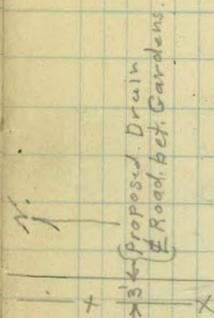 N.
>3'← { Proposed Drain
& Road. bet. Gardens.